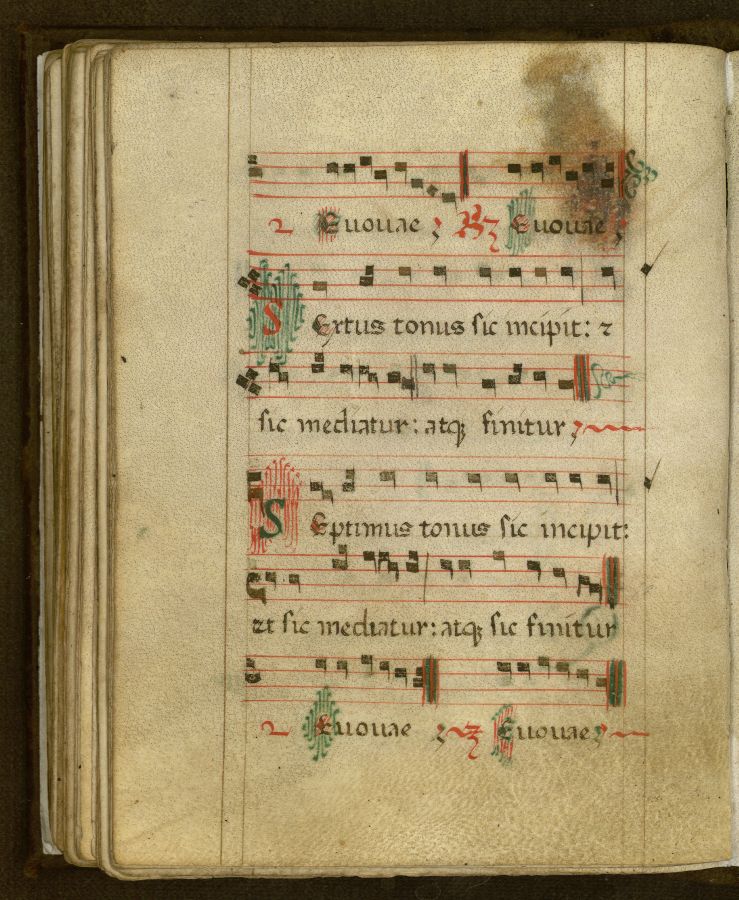 2 Euouae ; Euouae ;
Sextus tonus sic incipit: 2
sic mediatur: atq; finitur ;
Septimus tonus sic incipit:
et sic mediatur: atq; sic finitur
2 Euouae ; Euouae ;